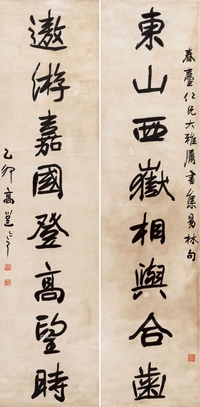 春臺仁兄大雅屬書集易林句
東山西嶽相輿合齒
遨游嘉國登高望時
乙卯高邕